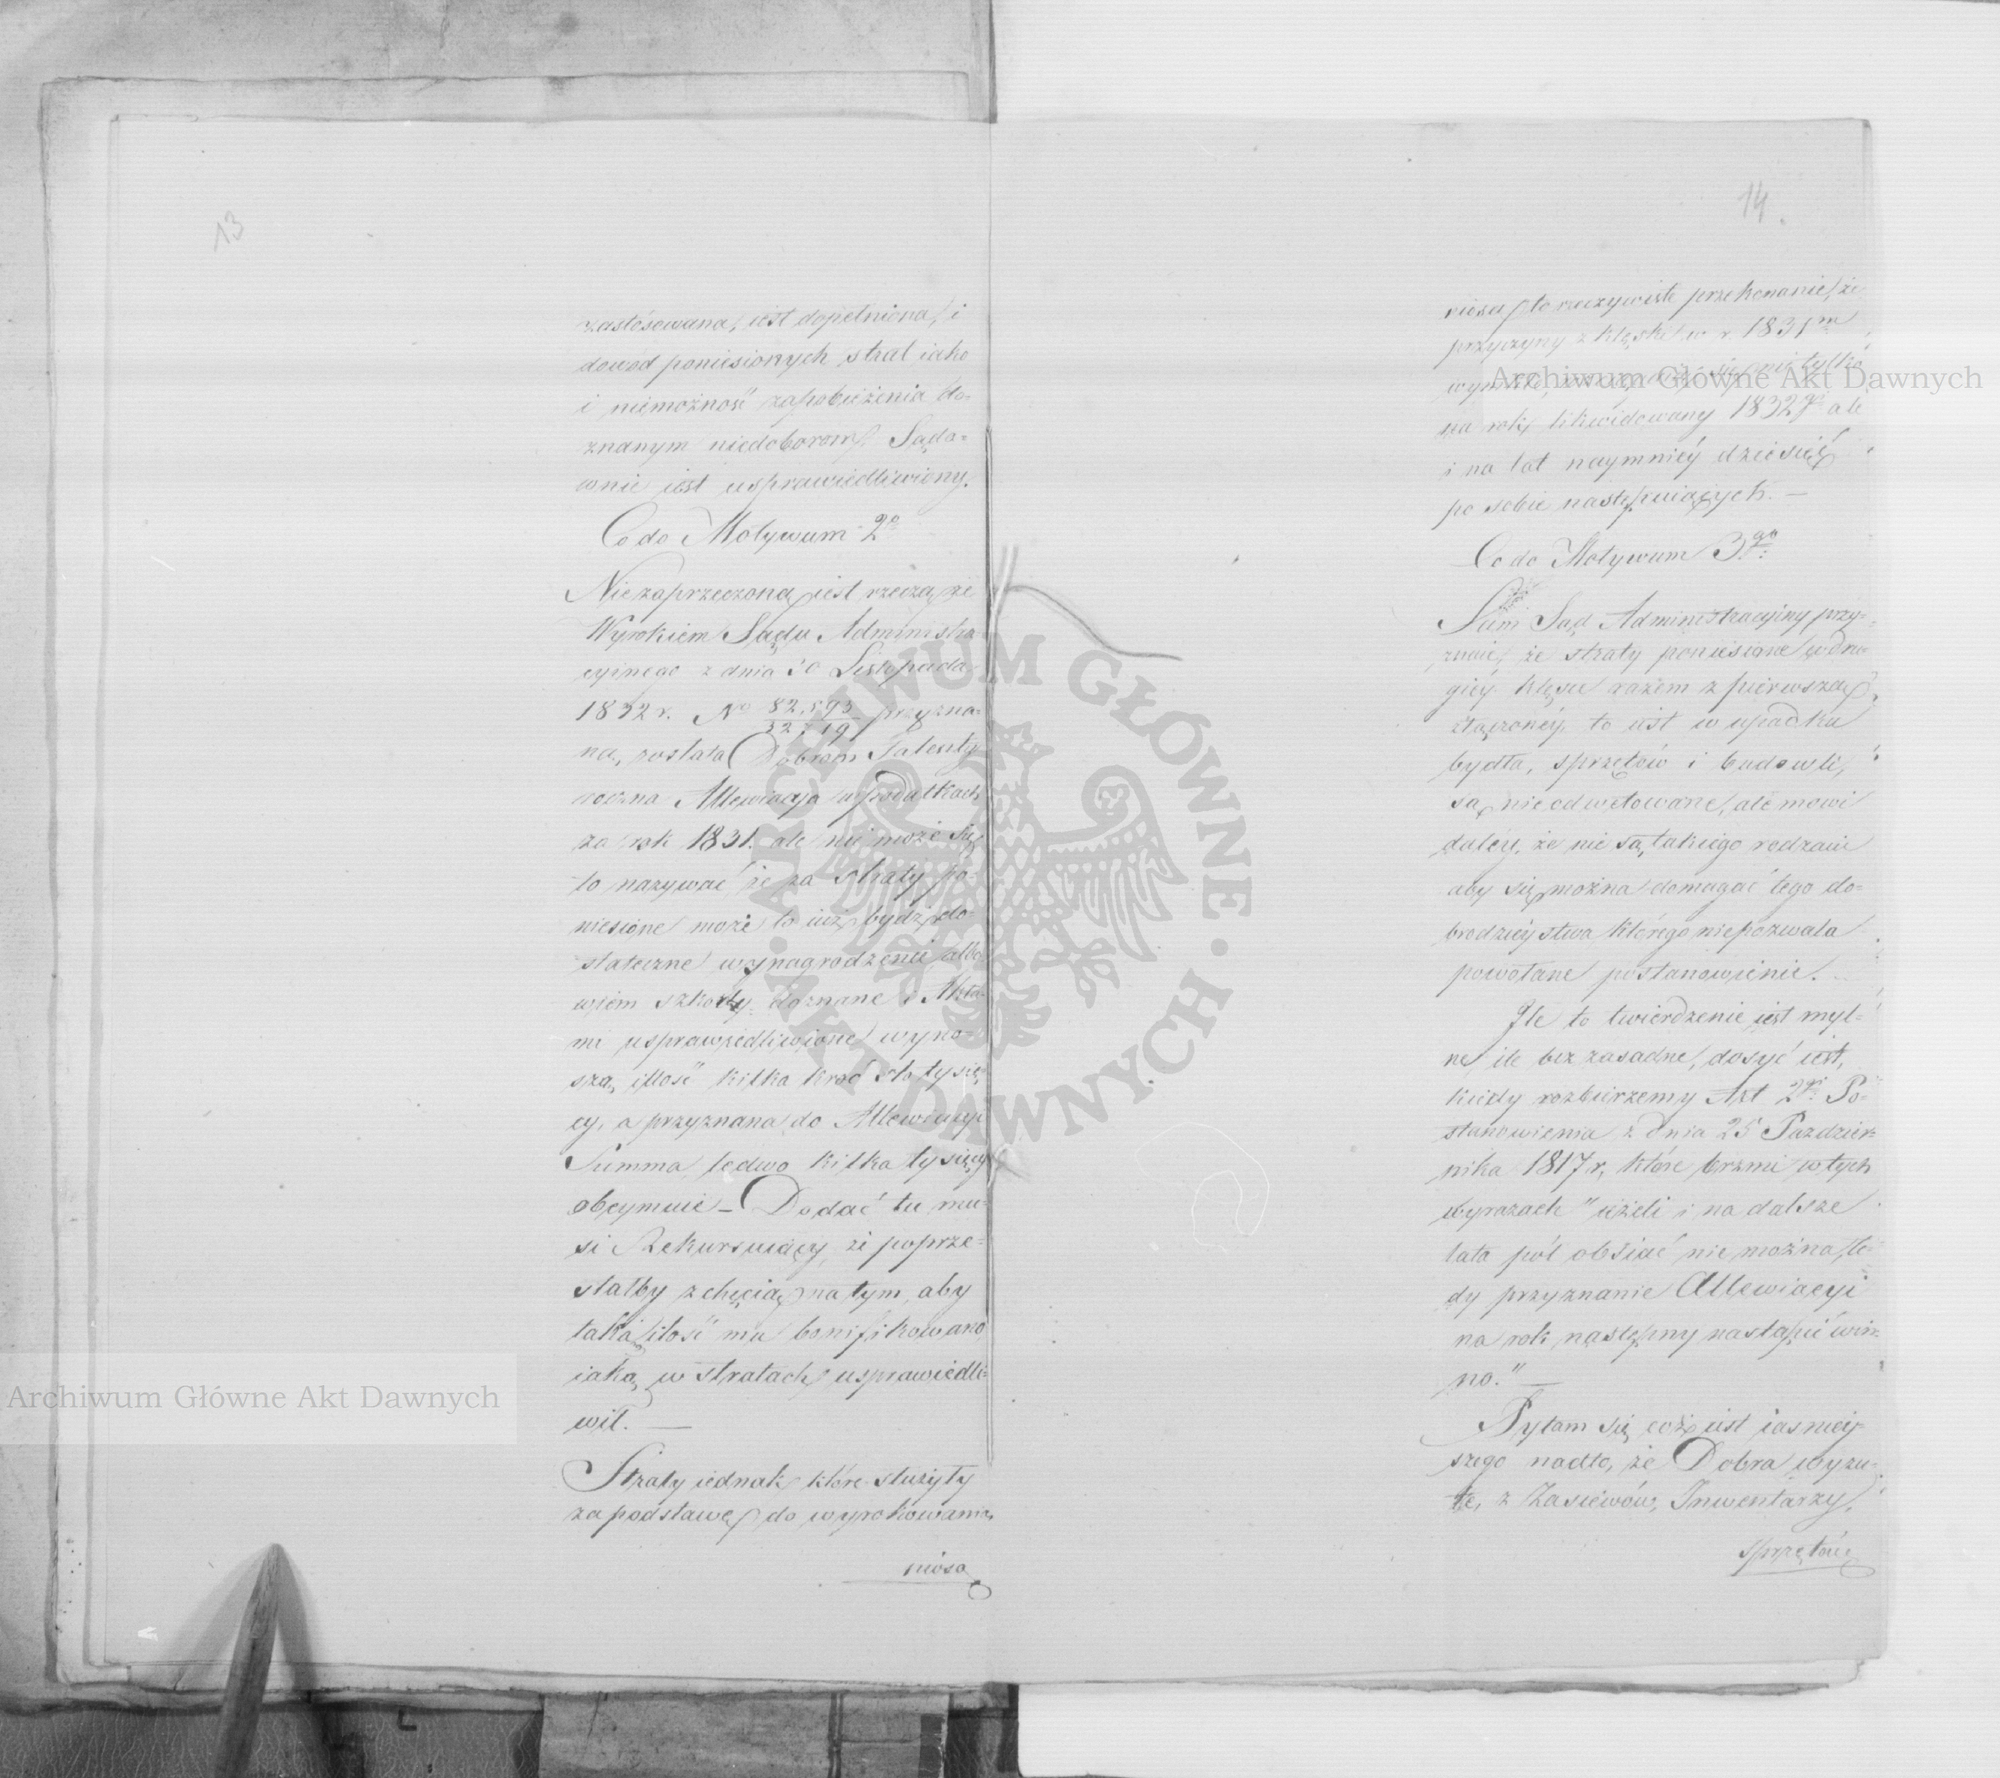 13
zastósowana, iest dopełniona, i
dowód poniesionych strat iako
i niemożność zapobieżenia do-
znanym niedoborom, Sądo-
wnie iest usprawiedliwiony.
Co do Motywum 2º
Niezaprzeczoną iest rzeczą że
Wyrokiem Sądu Administra-
cyjnego z dnia 30 Listopada
1832 r. Nº 82,593/32,719 przyzna-
na, została Dobrom
Allewiacya w podatkach
za rok 1831. ale nie może się
to nazywać że za straty po-
niesione może to iuż bydź do-
stateczne wynagrodzenie albo
wiem szkody doznane i Akta-
mi usprawiedliwione wyno-
szą, illość kilka kroć sto tysię-
cy, a przyznana do Allewiacyi
Summa ledwo kilka tysięcy
obeymuie – Dodać tu mu-
si Rekursuiący, że poprze-
stałby z chęcią na tym, aby
taką ilość mu bonifikowano
iaką w stratach usprawiedli-
wił. —
Straty iednak które służyły
za podstawę do wyrokowania,
niosą
14.
niosą to rzeczywiste przekonanie, że
przyczyny z klęski w r. 1831m
nie tylko
na rok likwidowany 1832gi ale
i na lat naymniéy dziesięć
po sobie następuiących. —
Co do Motywum 3.go
Sam Sąd Administracyjny przy-
znaie, że straty poniesione w dru-
giéy klęsce razem z pierwszą
złączonéy, to iest w upadku
bydła, sprzętów i budowli,
są nieodwetowane, ale mówi
daléy, że nie są takiego rodzaiu
aby się można domagać tego do-
brodzieystwa którego niepozwala
powołane postanowienie.
Ile to twierdzenie iest myl-
ne, ile bezzasadne, dosyć iest,
kiedy rozbierzemy Art 2gi Po-
stanowienia z dnia 25 Paździer-
nika 1817 r, które brzmi w tych
wyrazach "ieżeli i na dalsze
lata pól obsiać nie można, te-
dy przyznanie Allewiacyi
na rok następny nastąpić win-
no." —
Pytam się cóż iest iaśniéy-
szego nadto, że Dobra wyzu-
te, z Zasiewów, Inwentarzy,
sprzętów
Archiwum Główne Akt Dawnych
Archiwum Główne Akt Dawnych
ARCHIWUM GŁÓWNE
AKT DAWNYCH